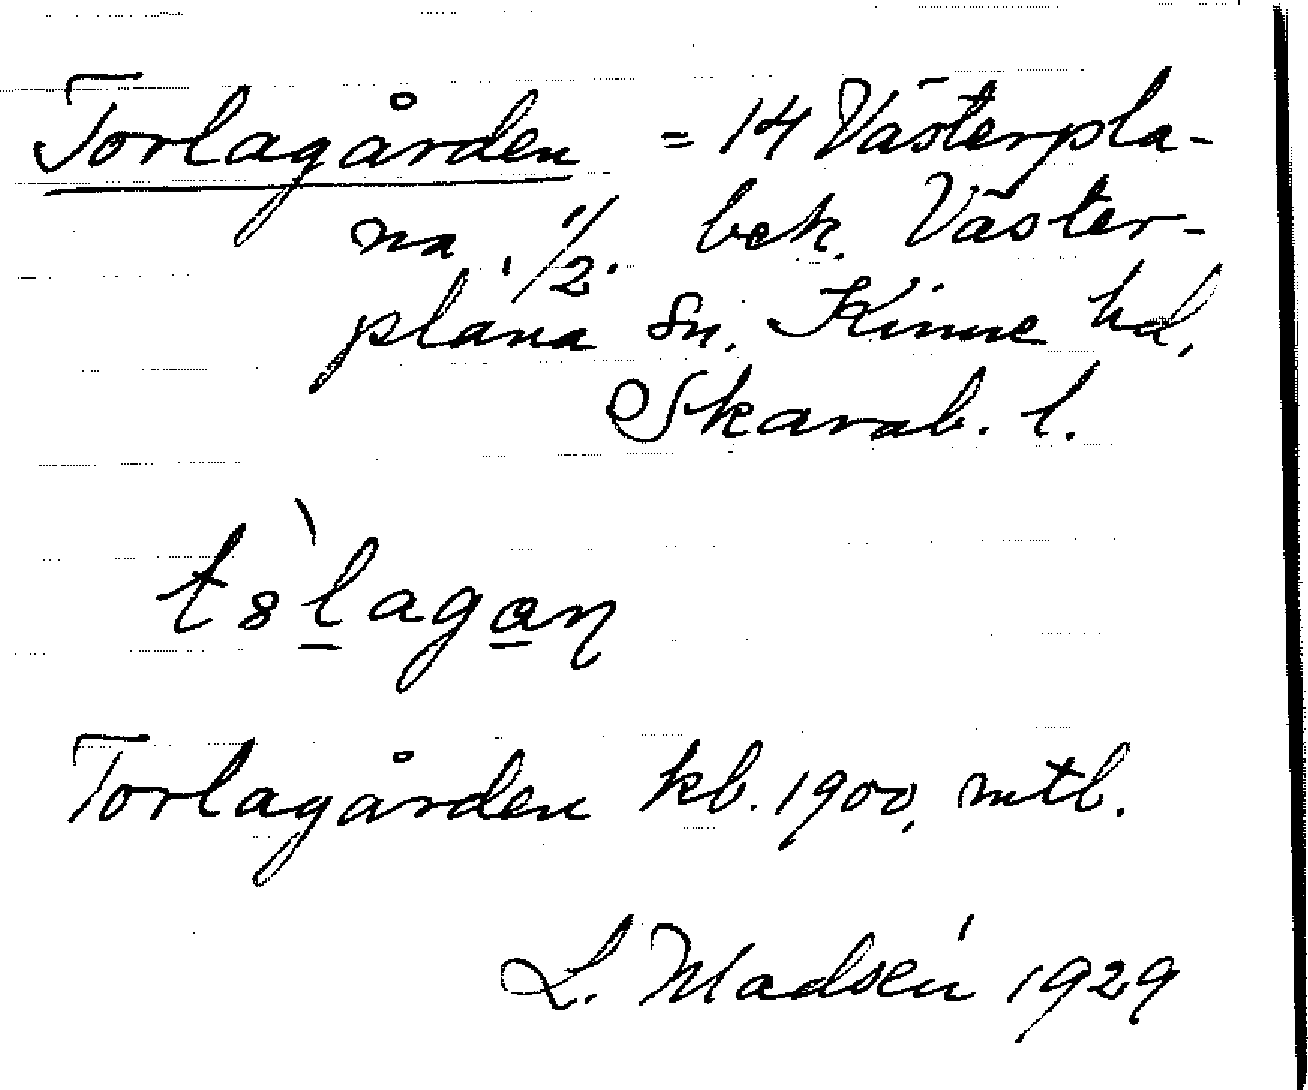 Torlagården = 14 Västerpla-
na 1/2. bek. Väster-
plana sn. Kinne hd,
Skarab. l.
Torlagården kb. 1900, mtb.
L. Madsén 1929